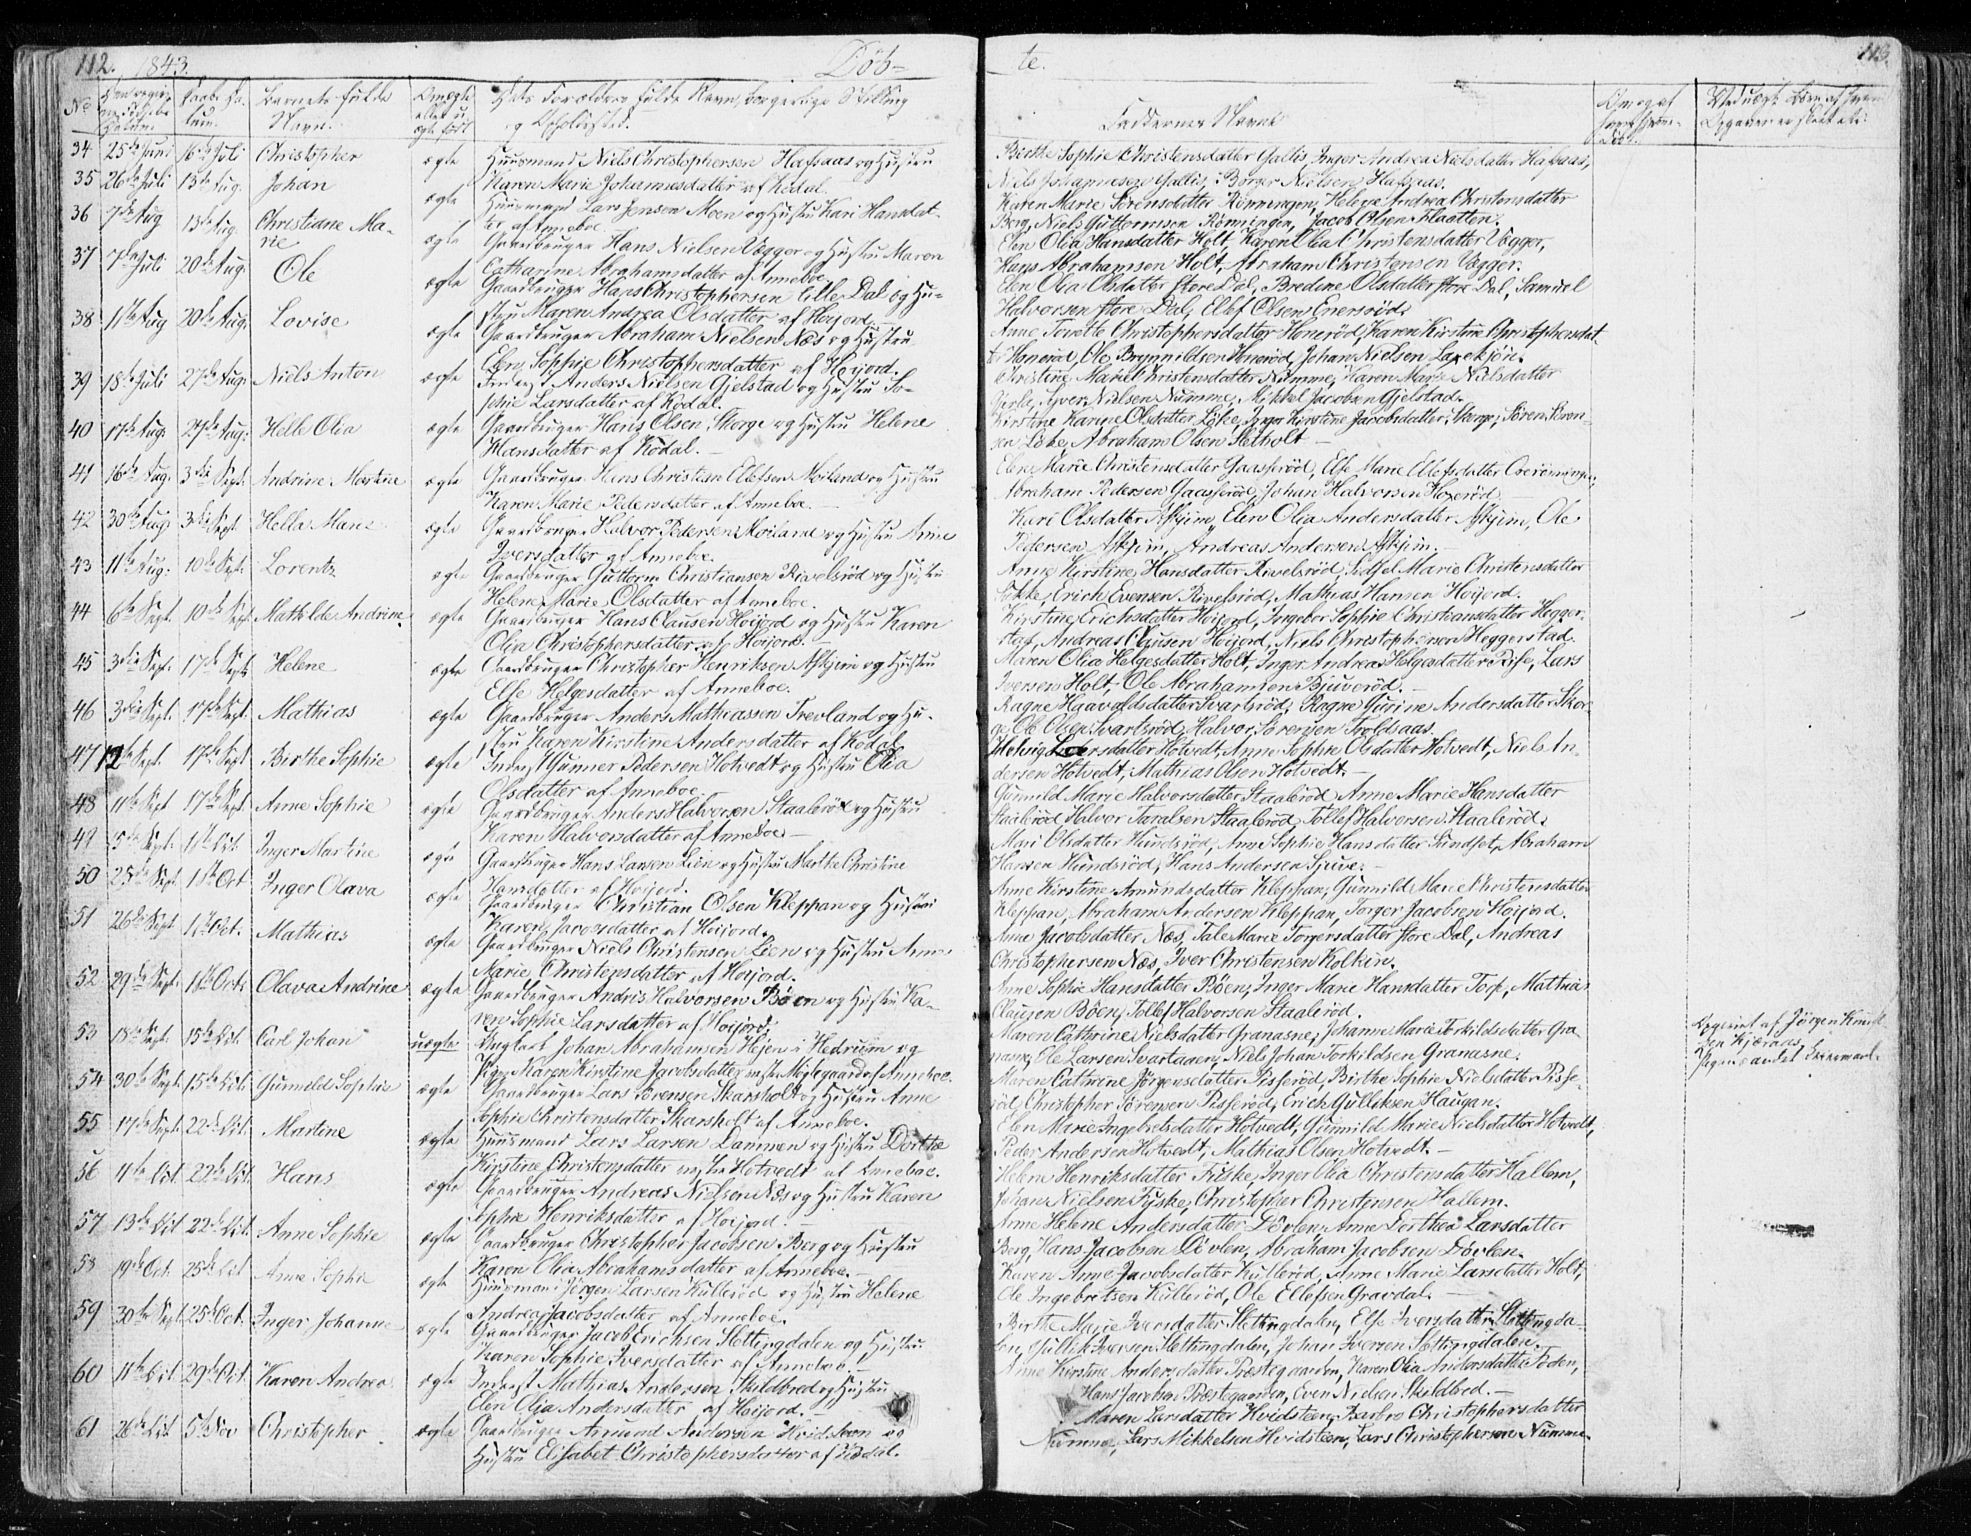 112. 1843. Døb-
te. 113.
No
Barnets fulde
Navn.
og Opholdssted.
Faddernes Navne
34 25de Juni 16de Juli Christopher ægte Huusmand Niels Christophersen Hafsaas og Hustru
Karen Marie Johannesdatter af Kodal.
Birthe Sophie Christensdatter Gallis, Inger Andrea Nielsdatter Hafsaas,
Niels Johannesen Gallis, Børger Nielsen Hafsaas.
35 26de Juli 13de Aug. Johan ægte Huusmand Lars Jensen Moen og Hustru Kari Hansdat-
ter af Anneboe.
Karen Marie Sørensdatter Rønningen, Helene Andrea Christensdatter
Berg, Niels Guttormsen Rønningen, Jacob Olsen Flaatten.
36 7de Aug 13de Aug. Christiane Ma-
rie ægte Gaardbruger Hans Nielsen Vegger og Hustru Maren
Catharine Abrahamsdatter af Anneboe
Elen Olia Hansdatter Holt, Karen Olia Christensdatter Vegger,
Hans Abrahamsen Holt, Abraham Christensen Vegger.
37 7de Juli 20de Aug. Ole ægte Gaardbruger Hans Christophersen lille Dal og Hu-
stru Maren Andrea Olsdatter af Høijord.
Elen Olia Olsdatter store Dal, Bredine Olsdatter store Dal, Samuel
Halvorsen store Dal, Ellef Olsen Enersrød.
38 11te Aug 20de Aug. Lovise ægte Gaardbruger Abraham Nielsen Næs og Hustru
Elen Sophie Christophersdatter af Høijord.
Anne Torette Christophersdatter Honerød, Karen Kirstine Christophersdat-
ter Honerød, Ole Brynnildsen Honerød, Johan Nielsen
39 18de Juli 27de Aug. Niels Anton ægte Inderst Anders Nielsen Gjelstad og Hustru So-
phie Larsdatter af Kodal.
Christine Marie Christensdatter Numme, Karen Marie Nielsdatter
Iver Nielsen Numme, Mikkel Jacobsen Gjelstad.
40 17de Aug. 27de Aug. Helle Olia ægte Gaardbruger Hans Olsen Skorge og Hustru Helene
Hansdatter af Kodal.
Kirstine Karine Olsdatter Løke, Inger Kirstine Jacobsdatter Skorge, Søren Søren-
sen Løke, Abraham Olsen Sletholt
41 16de Aug. 3die Sept. Andrine Martine ægte Gaardbruger Hans Christian Ellefsen Møiland og Hustru
Karen Marie Pedersdatter af Anneboe.
Elen Marie Christensdatter Gaasserød, Else Marie Ellefsdatter
Abraham Pedersen Gaasserød, Johan Halvorsen Hoxerød
42 30te Aug 3die Sept Hella Marie ægte Gaardbruger Halvor Pedersen Møiland og Hustru Anne
Iversdatter af Anneboe.
Kari Olsdatter Askjim, Elen Olia Andersdatter Askjim, Ole
Pedersen Askjim, Andreas Andersen Askjim.
43 11te Aug. 10de Sept. Lorentz ægte Gaardbruger Guttorm Christiansen Rivelsrød og Hustru
Helene Marie Olsdatter af Anneboe.
Anne Kirstine Hansdatter Rivelsrød, Sidsel Marie Christensdatter
Erich Evensen Rivelsrød, Mathias Hansen Høijord.
44 6te Sept. 10de Sept. Mathilde Andrine ægte Gaardbruger Hans Clausen Høijord og Hustru Karen
Olia Christophersdatter af Høijord.
Kirstine Erichsdatter Høijord, Ingebor Sophie Christiansdatter Hegger-
stad, Andreas Clausen Høijord, Niels Christophersen Heggerstad.
45 3die Sept. 17de Sept. Helene ægte Gaardbruger Christopher Henriksen Askjim og Hustru
Else Helgesdatter af Anneboe.
Maren Olia Helgesdatter Holt, Inger Andrea Helgesdatter Rise, Lars
Iversen Holt, Ole Abrahamsen Bjuverød.
46 3die Sept. 17de Sept. Mathias ægte Gaardbruger Anders Mathiassen Trevland og Hu-
stru Karen Kirstine Andersdatter af Kodal
Ragne Haavaldsdatter Svartsrød, Ragne Gurine Andersdatter Skor-
ge, Ole Olsen Svartsrød, Halvor Sørensen Troldsaas.
47 12te Sept. 17de Sept Birthe Sophie ægte Inderst Gunner Pedersen Hotvedt og Hustru Olia
Olsdatter af Anneboe.
Helvig Larsdatter Hotvedt, Anne Sophie Olsdatter Hotvedt, Niels An-
dersen Hotvedt, Mathias Olsen Hotvedt.
48 11te Sept 17de Sept. Anne Sophie ægte Gaardbruger Anders Halvorsen Staalerød og Hustru
Karen Halvorsdatter af Anneboe.
Gunnild Marie Halvorsdatter Staalerød, Anne Marie Hansdatter
Staalerød, Halvor Taralsen Staalerød, Tollef Halvorsen Staalerød.
49 15de Sept. 1ste Oct. Inger Martine ægte Gaardbruger Hans Larsen Lien og Hustru Marthe Christine
Hansdatter af Høijord.
Mari Olsdatter Hundsrød, Anne Sophie Hansdatter Sundset, Abraham
Hansen Hundsrød, Hans Andersen
50 25de Sept 1ste Oct Inger Olava ægte Gaardbruger Christian Olsen Kleppan og Hustru
Karen Jacobsdatter af Høijord.
Anne Kirstine Amundsdatter Kleppan, Gunnild Marie Christensdatter
Kleppan, Abraham Andersen Kleppan, Torger Jacobsen Høijord.
51 26de Sept 1ste Oct. Mathias ægte Gaardbruger Niels Christensen Lien og Hustru Anne
Marie Christensdatter af Høijord.
Anne Jacobsdatter Næs, Tale Marie Torgersdatter store Dal, Andreas
Christophersen Næs, Iver Christensen Kolkin.
52 29de Sept. 1ste Oct. Olava Andrine ægte Gaardbruger Andris Halvorsen Bøen og Hustru Ka-
ren Sophie Larsdatter af Høijord.
Anne Sophie Hansdatter Bøen, Inger Marie Hansdatter Torp, Mathias
Clausen Bøen, Tollef Halvorsen Staalerød.
53 18de Sept. 15de Oct. Carl Johan uægte Ungkarl Johan Abrahamsen Hejen i Hedrum og
Pige Karen Kirstine Jacobsdatter af Anneboe.
Maren Cathrine Nielsdatter Granasne, Johanne Marie Torkildsdatter Gra-
nasne, Ole Larsen Svartaaen, Niels Johan Torkildsen Granasne.
Opgivet af Jørgen
54 30te Sept. 15de Oct. Gunnild Sophie ægte Gaardbruger Lars Sørensen Skarsholt og Hustru Anne
Sophie Christensdatter Skarsholt af Anneboe.
Maren Cathrine Jørgensdatter Pisserød, Birthe Sophie Nielsdatter Pisse-
rød, Christopher Sørensen Pisserød, Erich Gulliksen Haugan.
55 17de Sept. 22de Oct. Martine ægte Huusmand Lars Larsen Dammen og Hustru Dorthe
Kirstine Christensdatter Hotvedt af Anneboe.
Elen Marie Ingebretsdatter Hotvedt, Gunnild Marie Nielsdatter Hotvedt,
Peder Andersen Hotvedt, Mathias Olsen Hotvedt.
56 11te Oct. 22de Oct. Hans ægte Gaardbruger Andreas Nielsen Næs og Hustru Karen
Sophie Henriksdatter af Høijord.
Helene Henriksdatter Fiske, Inger Olia Christensdatter Hallem,
Johan Nielsen Fyske, Christopher Christensen Hallem.
57 13de Oct. 22de Oct. Anne Sophie ægte Gaardbruger Christopher Jacobsen Berg og Hustru
Karen Olia Abrahamsdatter af Anneboe.
Anne Helene Andersdatter Døvlen, Anne Dorthea Larsdatter
Berg, Hans Jacobsen Døvlen, Abraham Jacobsen Døvlen.
58 19de Oct. 25de Oct Anne Sophie ægte Huusmand Jørgen Larsen Kullerød og Hustru Helene
Andrea Jacobsdatter af Anneboe.
Karen Anne Jacobsdatter Kullerød, Anne Marie Larsdatter Holt,
Ole Ingebretsen Kullerød, Ole Ellefsen Gravdal.
59 30te Sept 25de Oct. Inger Johanne ægte Gaardbruger Jacob Erichsen Slettingdalen og Hustru
Karen Sophie Iversdatter af Anneboe.
Birthe Marie Iversdatter Slettingdalen, Else Iversdatter Slettingda-
len, Gullik Iversen Slettingdalen, Johan Iversen Slettingdalen.
60 11te Oct 29de Oct. Karen Andrea ægte Inderst Mathias Andersen Skildbred og Hustru
Elen Olia Andersdatter af Høijord.
Anne Kirstine Andersdatter Præstegaarden, Karen Olia Andersdatter Foden,
Hans Jacobsen Præstegaarden, Even Nielsen Skuldbred.
61 26de Oct 5te Nov Christopher ægte Gaardbruger Amund Andersen Hvidsteen og
Hustru Elisabet Christophersdatter af Kodal.
Maren Larsdatter Hvidsteen, Barbro Christophersdatter
Numme, Lars Mikkelsen Hvidsteen, Lars Christophersen Numme.